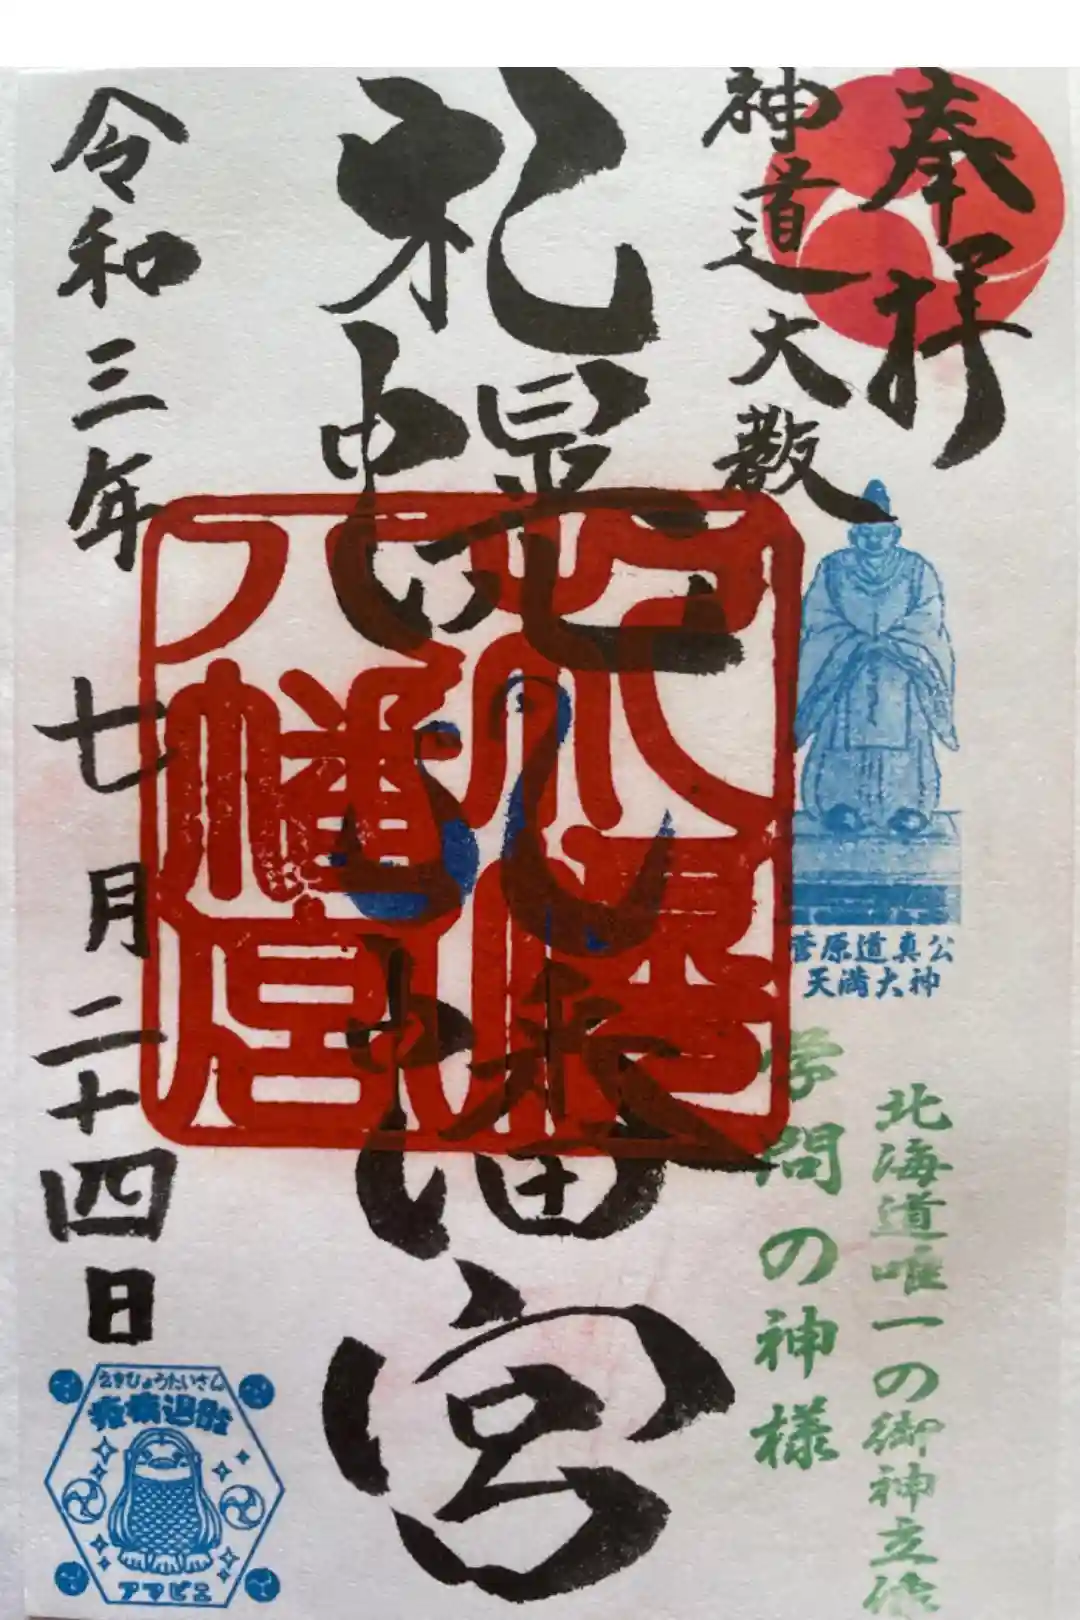 奉拝
神道大教
札幌八幡宮
札幌八幡宮
菅原道真公
天満大神
北海道唯一の御神立像
学問の神様
令和三年七月二十四日
えきびょうたいさん
疫病退散
アマビエ